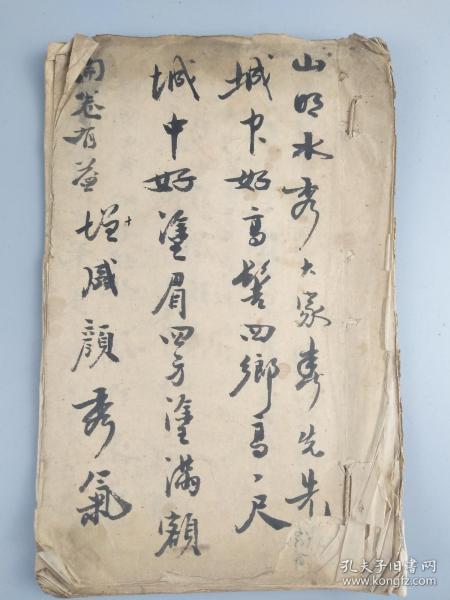 山明水秀大家春先朱
城中好高髻四鄉高一尺
城中好塗眉四方塗滿額
開卷有益
增減顏秀氣
孔夫子旧书网
www.kongfz.com